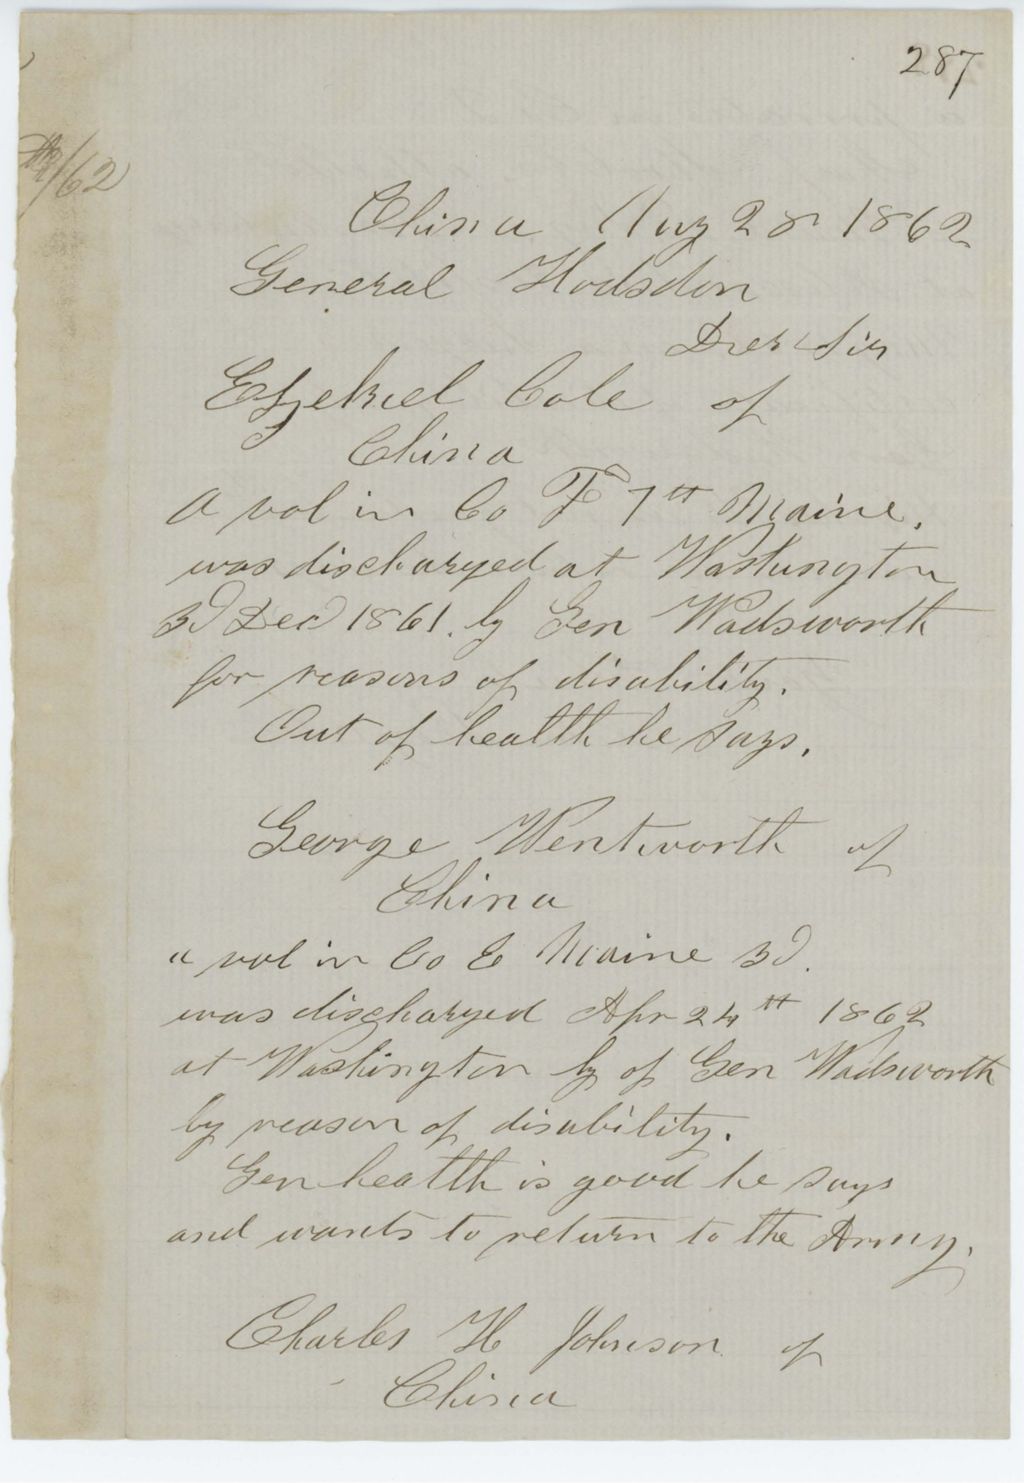 287
/62
China Aug 28 1862
General Hodsdon
Dear Sir
Ezekiel Cole of
China
A vol in Co F 7th Maine.
was discharged at Washington
3d Dec 1861. by Gen Wadsworth
for reasons of disability.
Out of health he says.
George Wentworth of
China
a vol in Co E Maine 3d.
was discharged Apr 24th 1862
at Washington by of Gen Wadsworth
by reason of disability.
Gen health is good he says
and wants to return to the Army.
Charles H Johnson of
China